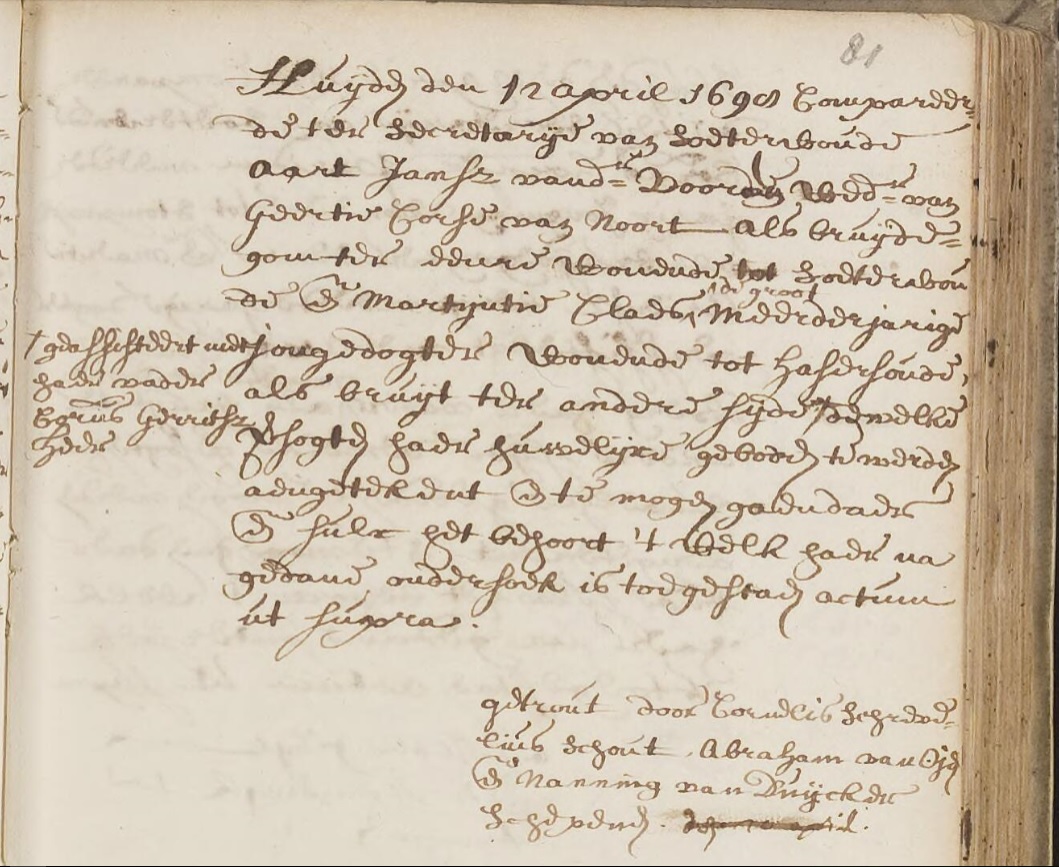 81
Huyden den 12 april 1698 Compareer-
de ter Secretarije van Soeterwoude
Aart Jansz vander Voorde Wedr van
Geertie Corse van Noort als bruyde-
gom ter eenre Wonende tot Soeterwou
de En Martijntie Claes de groot Meerderjarige
jongedogter Wonende tot Haserswoude
als bruyt ter andere syde dewelke
versogten haer huwelyxe geboden te werden
aengeteekent En te mogen gaen daer
En sulx het behoort 't Welk haer na
gedane ondersoek is toegestaen actum
ut supra.
geassisteert met
haer vader
Gerritsz
getrout door Cornelis Schreve-
lius Schout Abraham van
En Nanning van Duijcker
Schepenen. april.